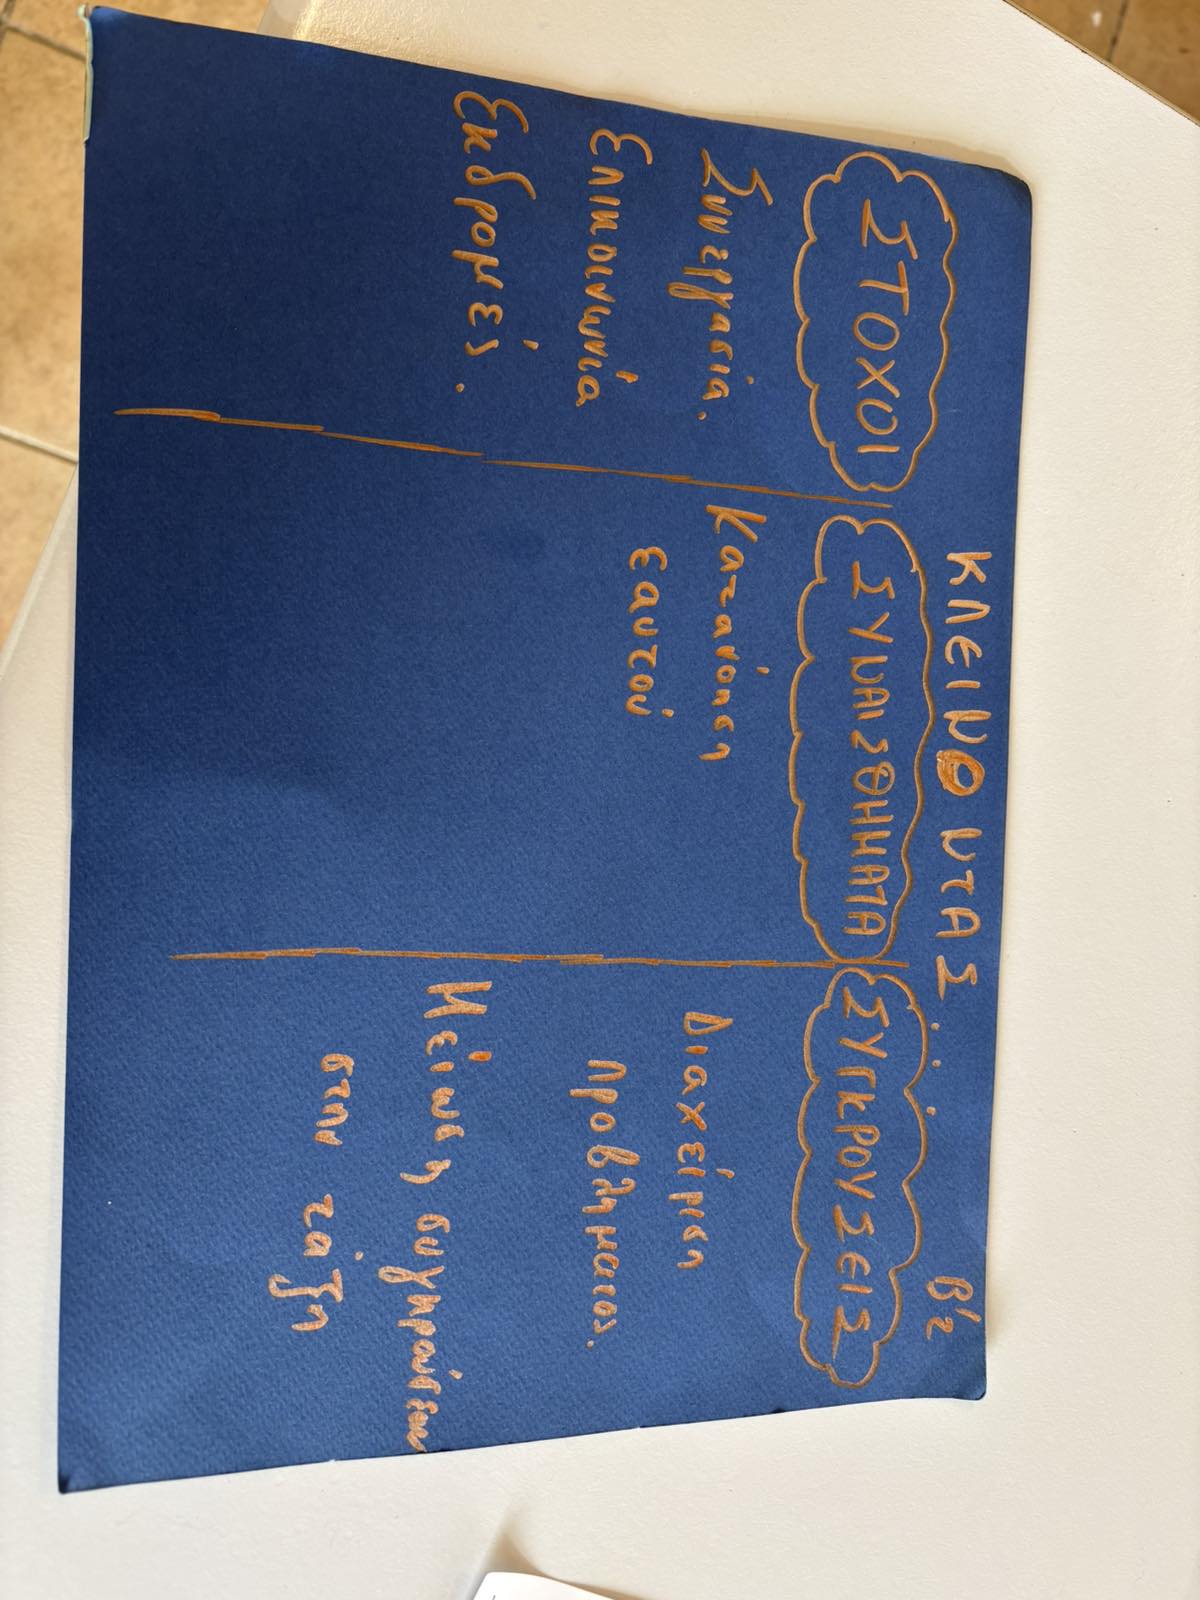 ΚΛΕΙΝΟΝΤΑΣ... Β'2
ΣΤΟΧΟΙ
Συνεργασία.
Επικοινωνία
Εκδρομές.
ΣΥΝΑΙΣΘΗΜΑΤΑ
Κατανόηση
εαυτού
ΣΥΓΚΡΟΥΣΕΙΣ
Διαχείριση
προβλήματος.
Μείωση συγκρούσεων
στην τάξη